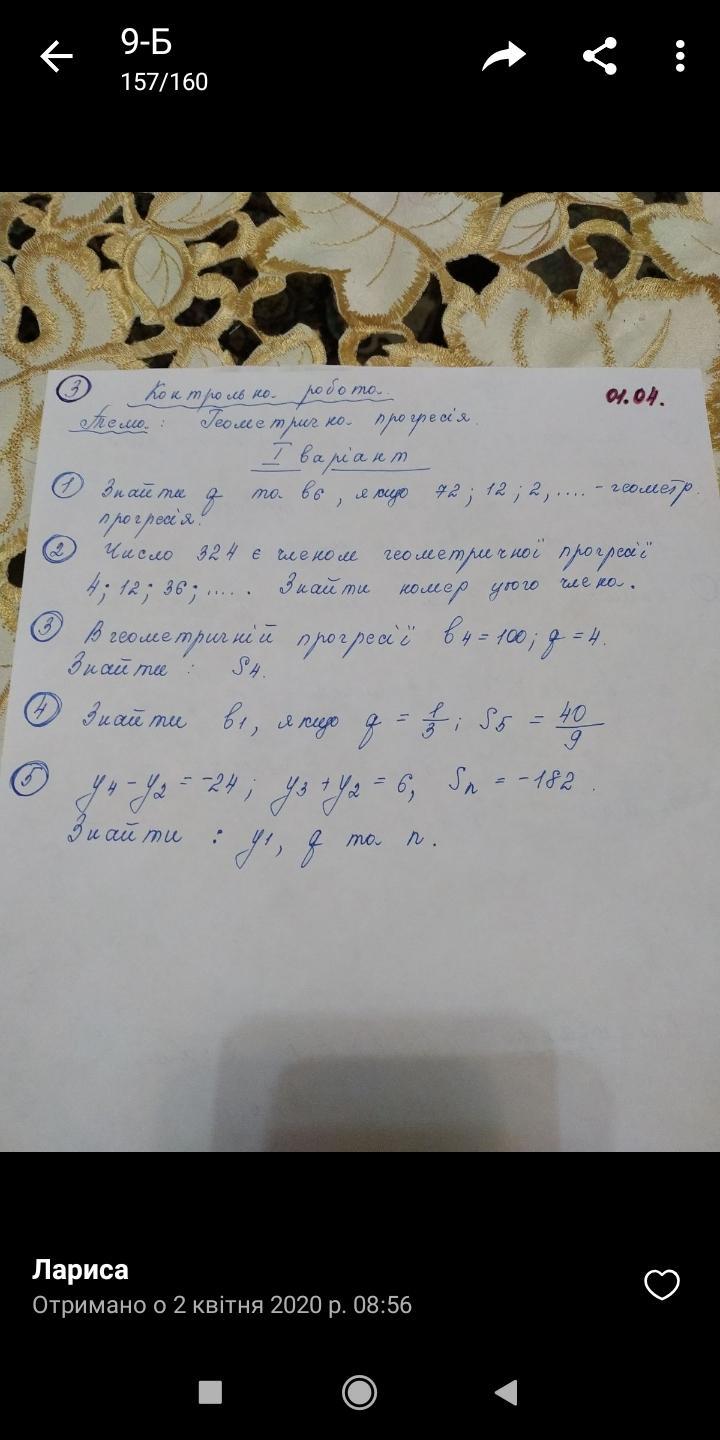 9-Б
157/160
3 Контрольна робота.
01.04.
Тема: Геометрична прогресія.
I варіант
1 Знайти q та b6, якщо 72; 12; 2, .... - геометр.
прогресія.
2 Число 324 є членом геометричної прогресії
4; 12; 36; ..... Знайти номер цього члена.
3 В геометричній прогресії b4 = 100; q = 4.
Знайти: S4.
4 Знайти b1, якщо q = 1/3; S5 = 40/9
5 y4 - y2 = -24; y3 + y2 = 6, Sn = -182.
Знайти: y1, q та n.
Лариса
Отримано о 2 квітня 2020 р. 08:56